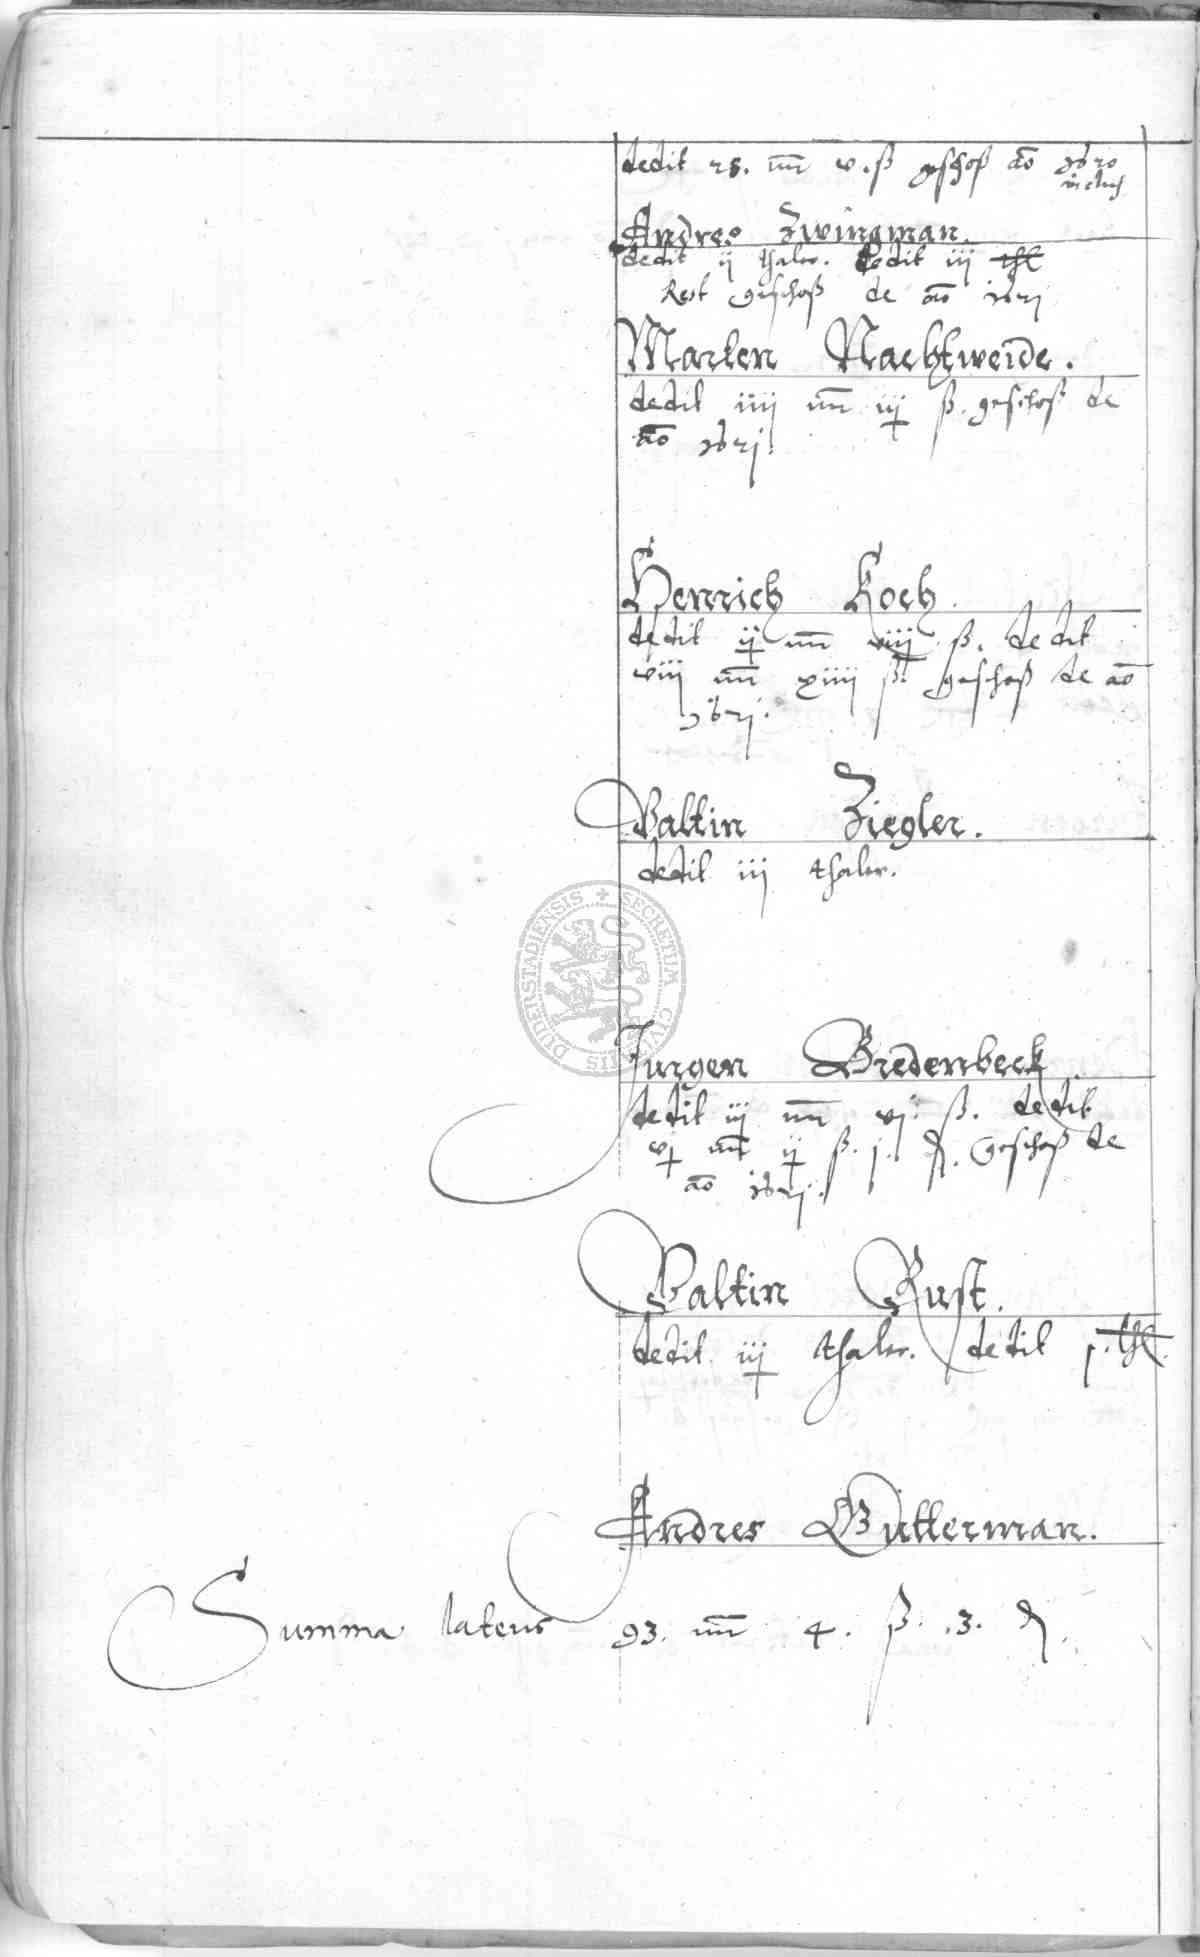 dedit 25. mr v. ß geschoß ao 1620
inclus
Andres Zwingman.
dedit ij thaler. dedit iij thl
Rest geschoß de ao 1621
Marten Nachtweide.
dedit iiij mr iij ß. geschoß de
ao 1621.
Henrich Koch.
dedit ij mr viij ß. dedit
viij mr xiiij ß. geschoß de ao
1621.
Valtin Ziegler.
dedit iij thaler.
DUDERSTADIENSIS + SECRETUM CIVITATIS
Jurgen Bredenbeck
dedit iij mr vj. ß. dedit
vj mr ij ß. j. ₰. Geschoß de
ao 1621.
Valtin Rust.
dedit iij thaler. dedit j. thl.
Andres Gütterman.
Summa lateris 93. mr 4. ß. 3. ₰.